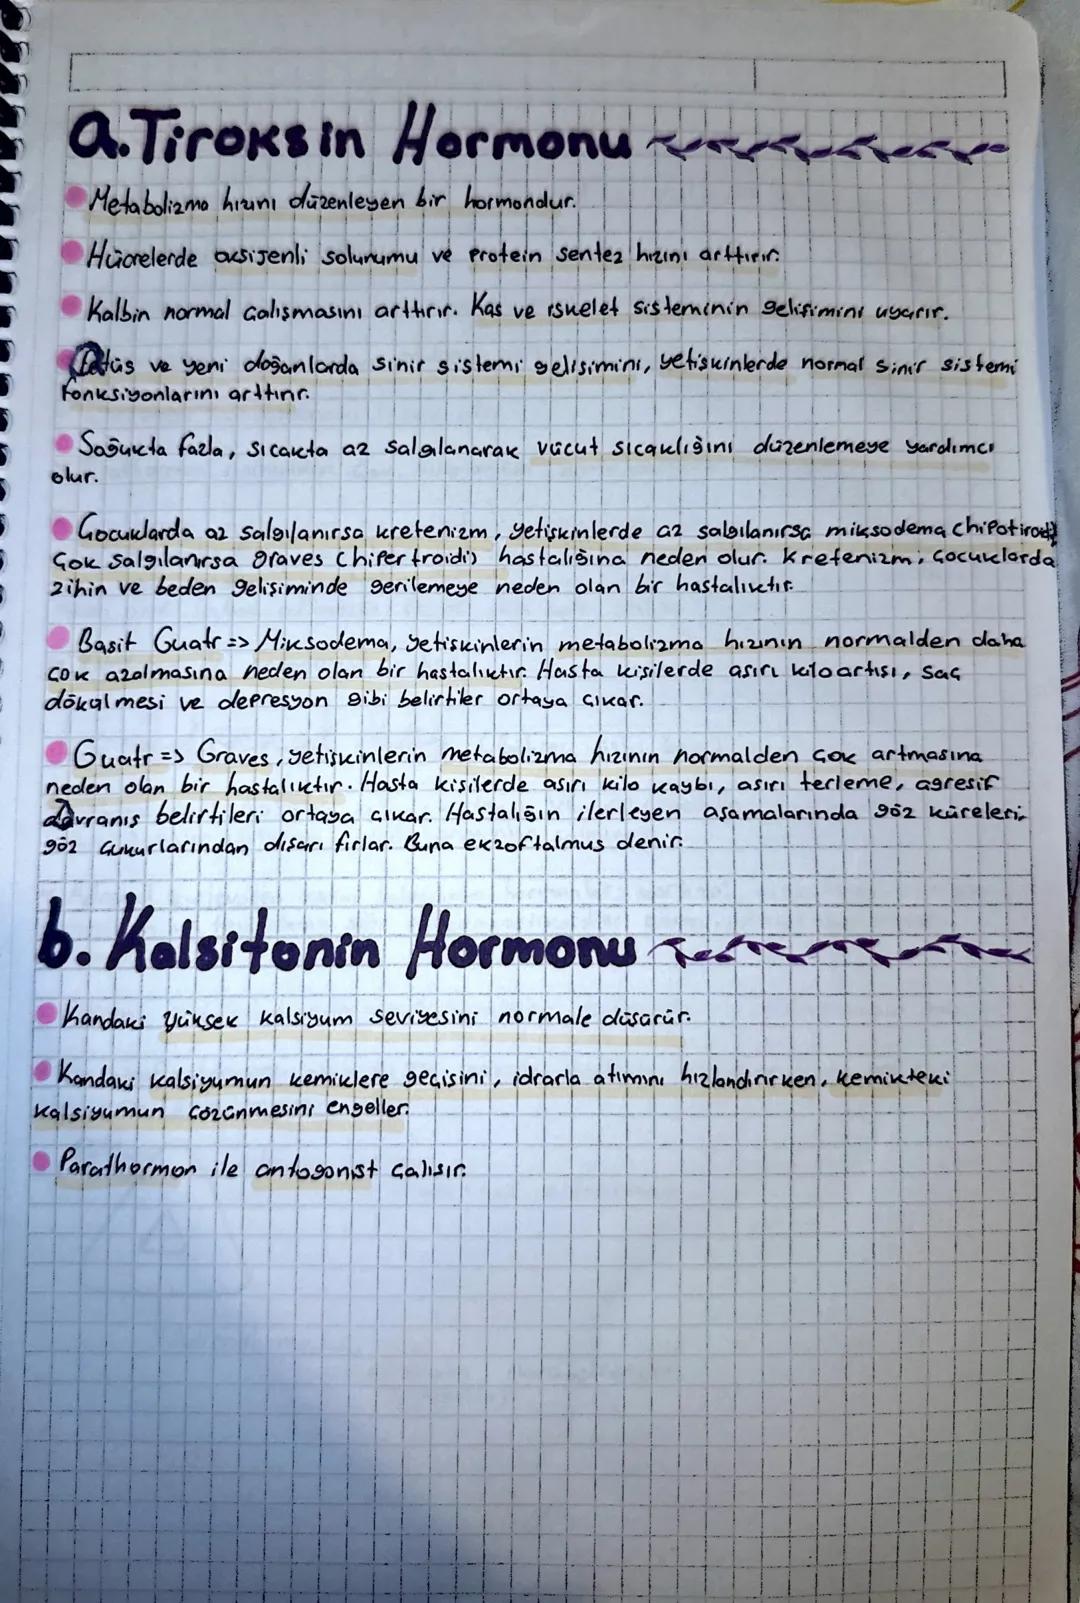 a. Tiroksin Hormonu
Metabolizma hızını düzenleyen bir hormondur.
Hücrelerde oksijenli solunumu ve protein sentez hızını arttırır.
Kalbin normal çalışmasını arttırır. Kas ve iskelet sisteminin gelişimini uyarır.
Fetüs ve yeni doğanlarda sinir sistemi gelişimini, yetişkinlerde normal sinir sistemi
fonksiyonlarını arttırır.
Soğukta fazla, sıcakta az salgılanarak vücut sıcaklığını düzenlemeye yardımcı
olur.
Çocuklarda az salgılanırsa kretenizm, yetişkinlerde az salgılanırsa miksodema (hipotiroidi)
Çok salgılanırsa graves (hipertroidi) hastalığına neden olur. Kretenizm; çocuklarda
zihin ve beden gelişiminde gerilemeye neden olan bir hastalıktır.
Basit Guatr => Miksodema, yetişkinlerin metabolizma hızının normalden daha
çok azalmasına neden olan bir hastalıktır. Hasta kişilerde aşırı kilo artışı, saç
dökülmesi ve depresyon gibi belirtiler ortaya çıkar.
Guatr => Graves, yetişkinlerin metabolizma hızının normalden çok artmasına
neden olan bir hastalıktır. Hasta kişilerde aşırı kilo kaybı, aşırı terleme, agresif
davranış belirtileri ortaya çıkar. Hastalığın ilerleyen aşamalarında göz küreleri,
göz çukurlarından dışarı fırlar. Buna ekzoftalmus denir.
b. Kalsitonin Hormonu
Kandaki yüksek kalsiyum seviyesini normale düşürür.
Kandaki kalsiyumun kemiklere geçişini, idrarla atımını hızlandırırken, kemikteki
kalsiyumun çözünmesini engeller.
Parathormon ile antogonist çalışır.